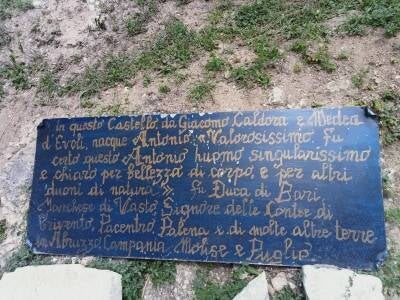 in questo Castello, da Giacomo Caldora e Medea
d'Evoli, nacque Antonio, "Valorosissimo fu
certo questo Antonio huomo singularissimo
e chiaro per bellezza di corpo, e per altri
duoni di natura". Fu Duca di Bari
Marchese di Vasto, Signore delle Contee di
Trivento, Pacentro, Palena e di molte altre terre
in Abruzzo, Campania, Molise e Puglia